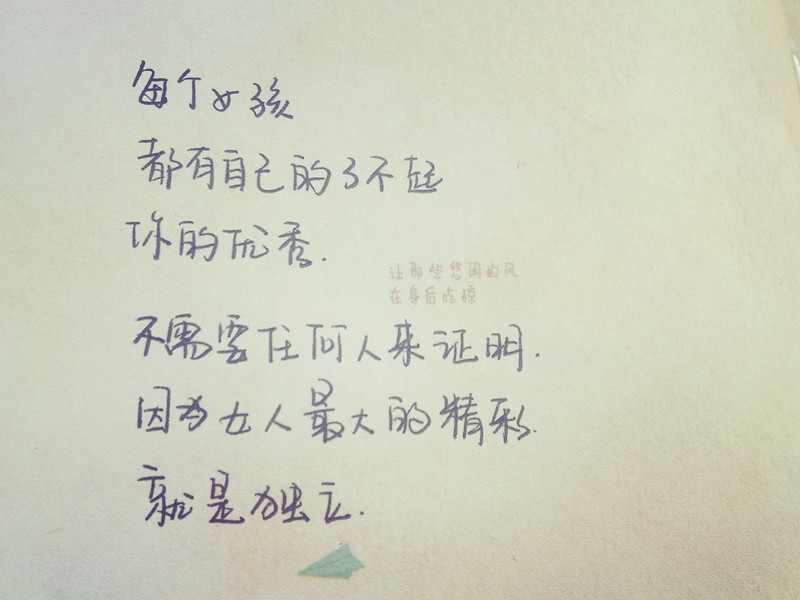 每个女孩
都有自己的了不起
你的优秀.
让那些悠闲的风
在身后吃惊
不需要任何人来证明.
因为女人最大的精彩.
就是独立.